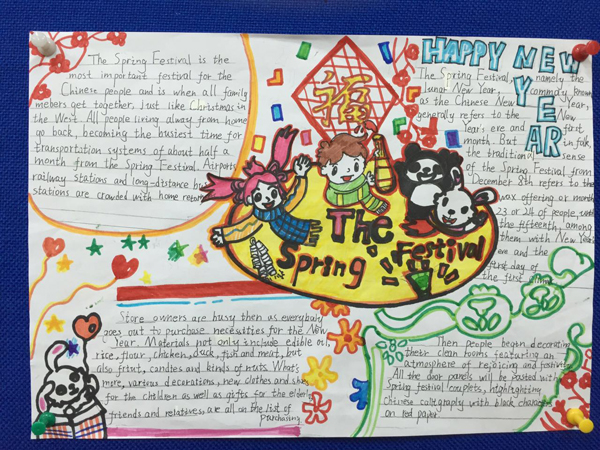 The Spring Festival is the
most important festival for the
Chinese people and is when all family
mebers get together, Just like Christmas in
the West. All people living away from home
go back, becoming the busiest time for
transportation systems of about half a
month from the Spring Festival. Airports
railway stations and long-distance bus
stations are crowded with home
福
HAPPY NEW
YEAR
The Spring Festival, namely the
lunar New Year, commonly known
as the Chinese New Year,
generally refers to the New
Year's eve and first
month. But in folk,
the traditional sense
of the Spring Festival from
December 8th refers to the
wax offering or month
23 or 24 of people, until
the fifteenth, among
them with New Year's
eve and the
first day of
the first
The
Spring Festival
Store owners are busy then as everybody
goes out to purchase necessities for the New
Year. Materials not only include edible oil,
rice, flour, chicken, duck, fish and meat, but
also fruit, candies and kinds of nuts. What's
more, various decorations, new clothes and shoes
for the children as well as gifts for the elderly
friends and relatives, are all on the list of
purchasing
Then people begin decorating
their clean rooms featuring an
atmosphere of rejoicing and festivity
All the door panels will be pasted with
Spring Festival couplets, highlighting
Chinese calligraphy with black characters
on red paper.